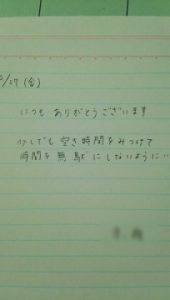 /27(金)
いつも ありがとうございます
少しでも 空き時間をみつけて
時間を無駄にしないように